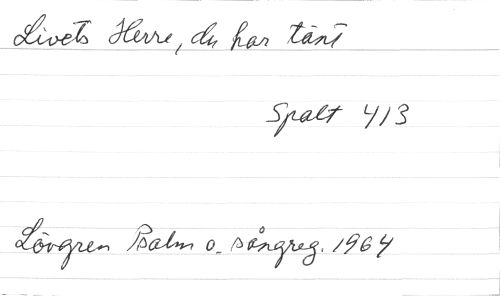 Livets Herre, du har tänt
Spalt 413
Lövgren Psalm o. sångreg. 1964